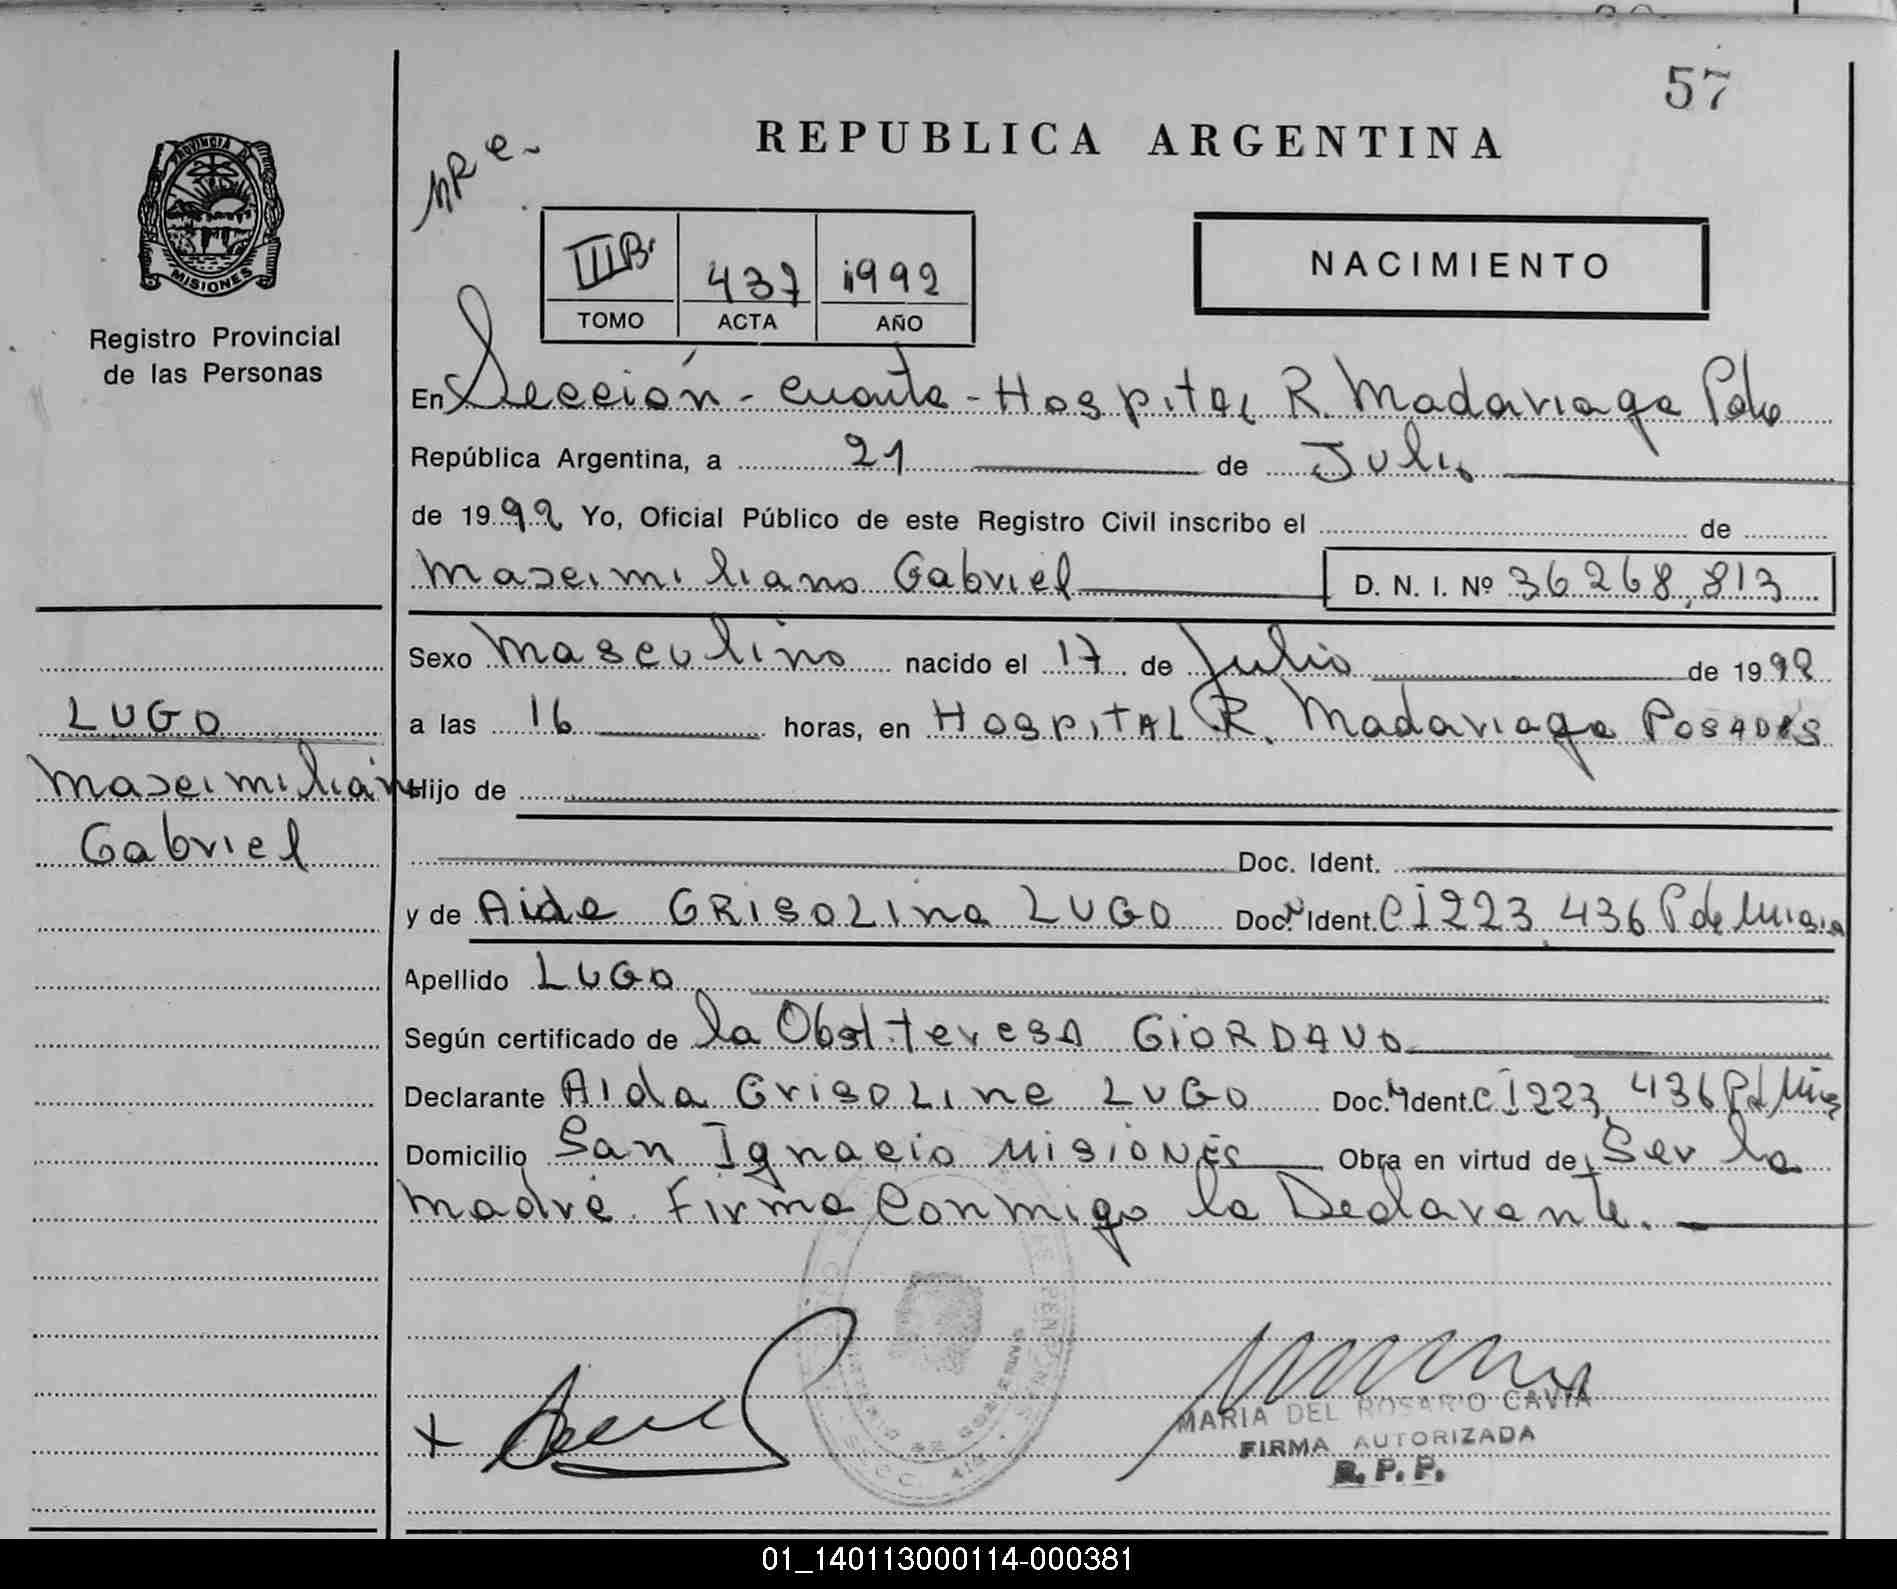 57
REPUBLICA ARGENTINA
PROVINCIA DE
MISIONES
Registro Provincial
de las Personas
IIIB. 437 1992
TOMO ACTA AÑO
NACIMIENTO
En Sección - Cuarta - Hospital R. Madariaga
República Argentina, a 21 de Julio
de 1992 Yo, Oficial Público de este Registro Civil inscribo el de
Maximiliano Gabriel D. N. I. Nº 36.268.813
Sexo Masculino nacido el 17 de Julio de 1992
LUGO
a las 16 horas, en HOSPITAL R. Madariaga POSADAS
Maximiliano
Hijo de
Gabriel
Doc. Ident.
y de Aida GRISOLina LUGO Doc. Ident. CI 223.436 P de Misiones
Apellido LUGO
Según certificado de la Obst. teresa GIORDANO
Declarante Aida GrisoLina LUGO Doc. Ident. CI 223.436
Domicilio San Ignacio MISIONES Obra en virtud de Ser la
madre. Firma Conmigo la Declarante.
MARIA DEL ROSARIO CAVIA
FIRMA AUTORIZADA
R. P. P.
01_140113000114-000381